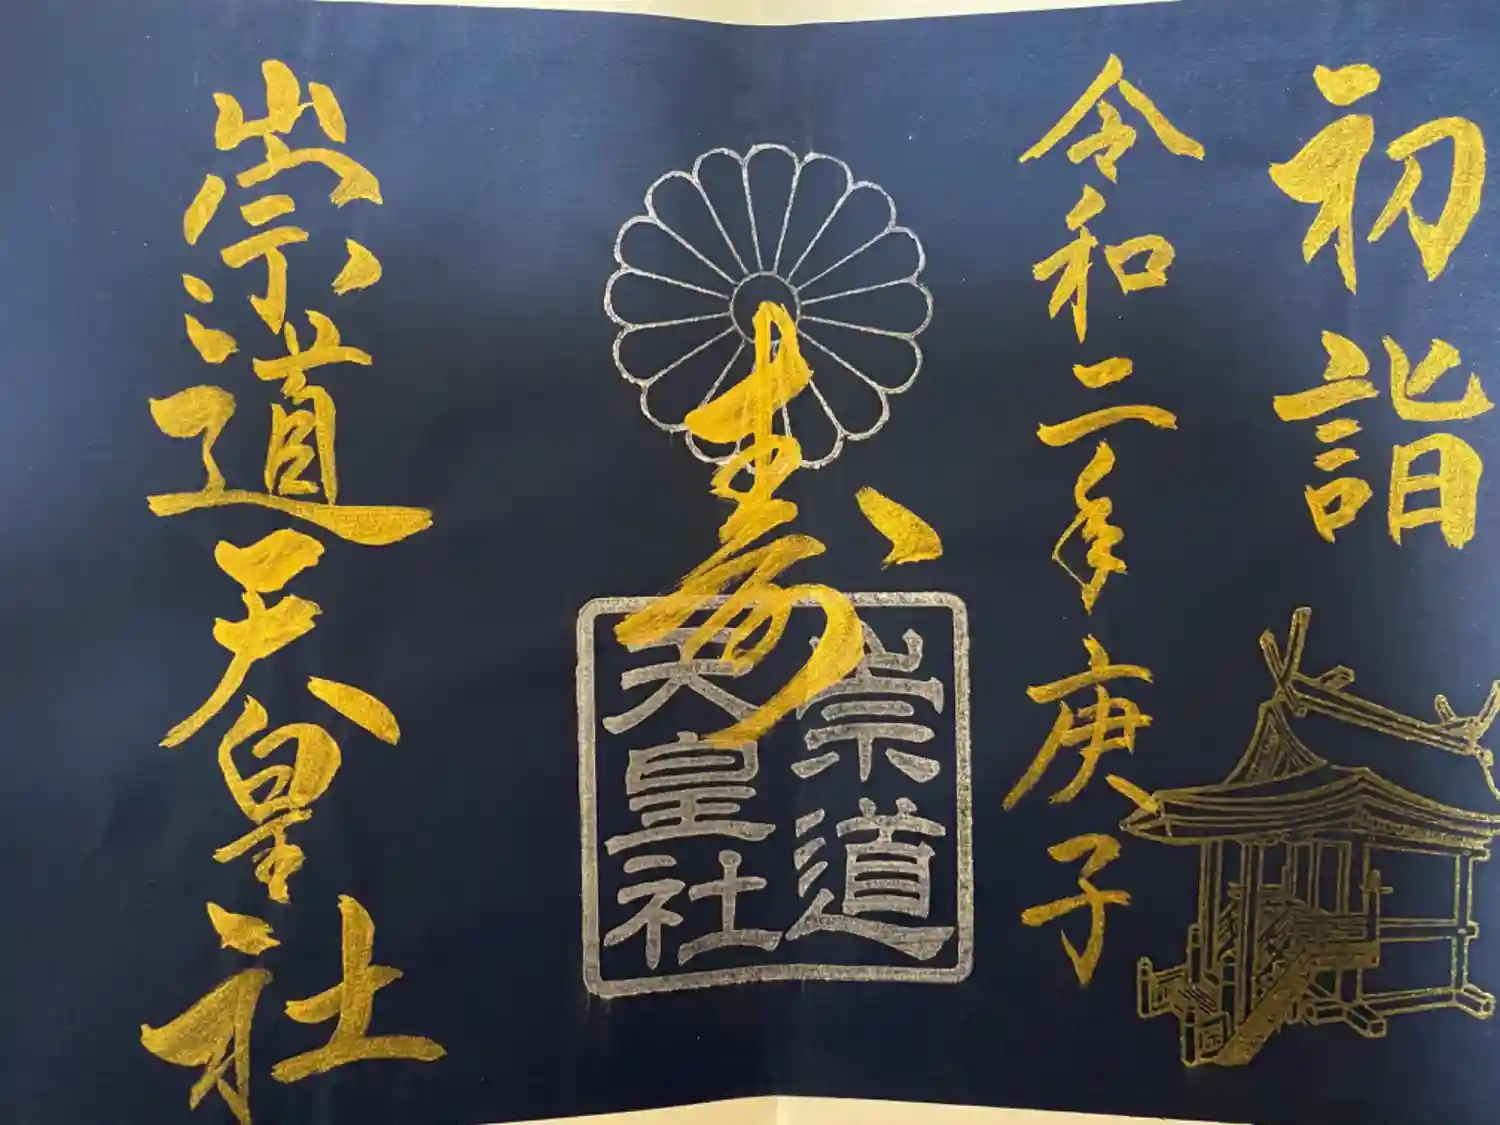 初詣
令和二年庚子
寿
崇道
天皇社
崇道天皇社